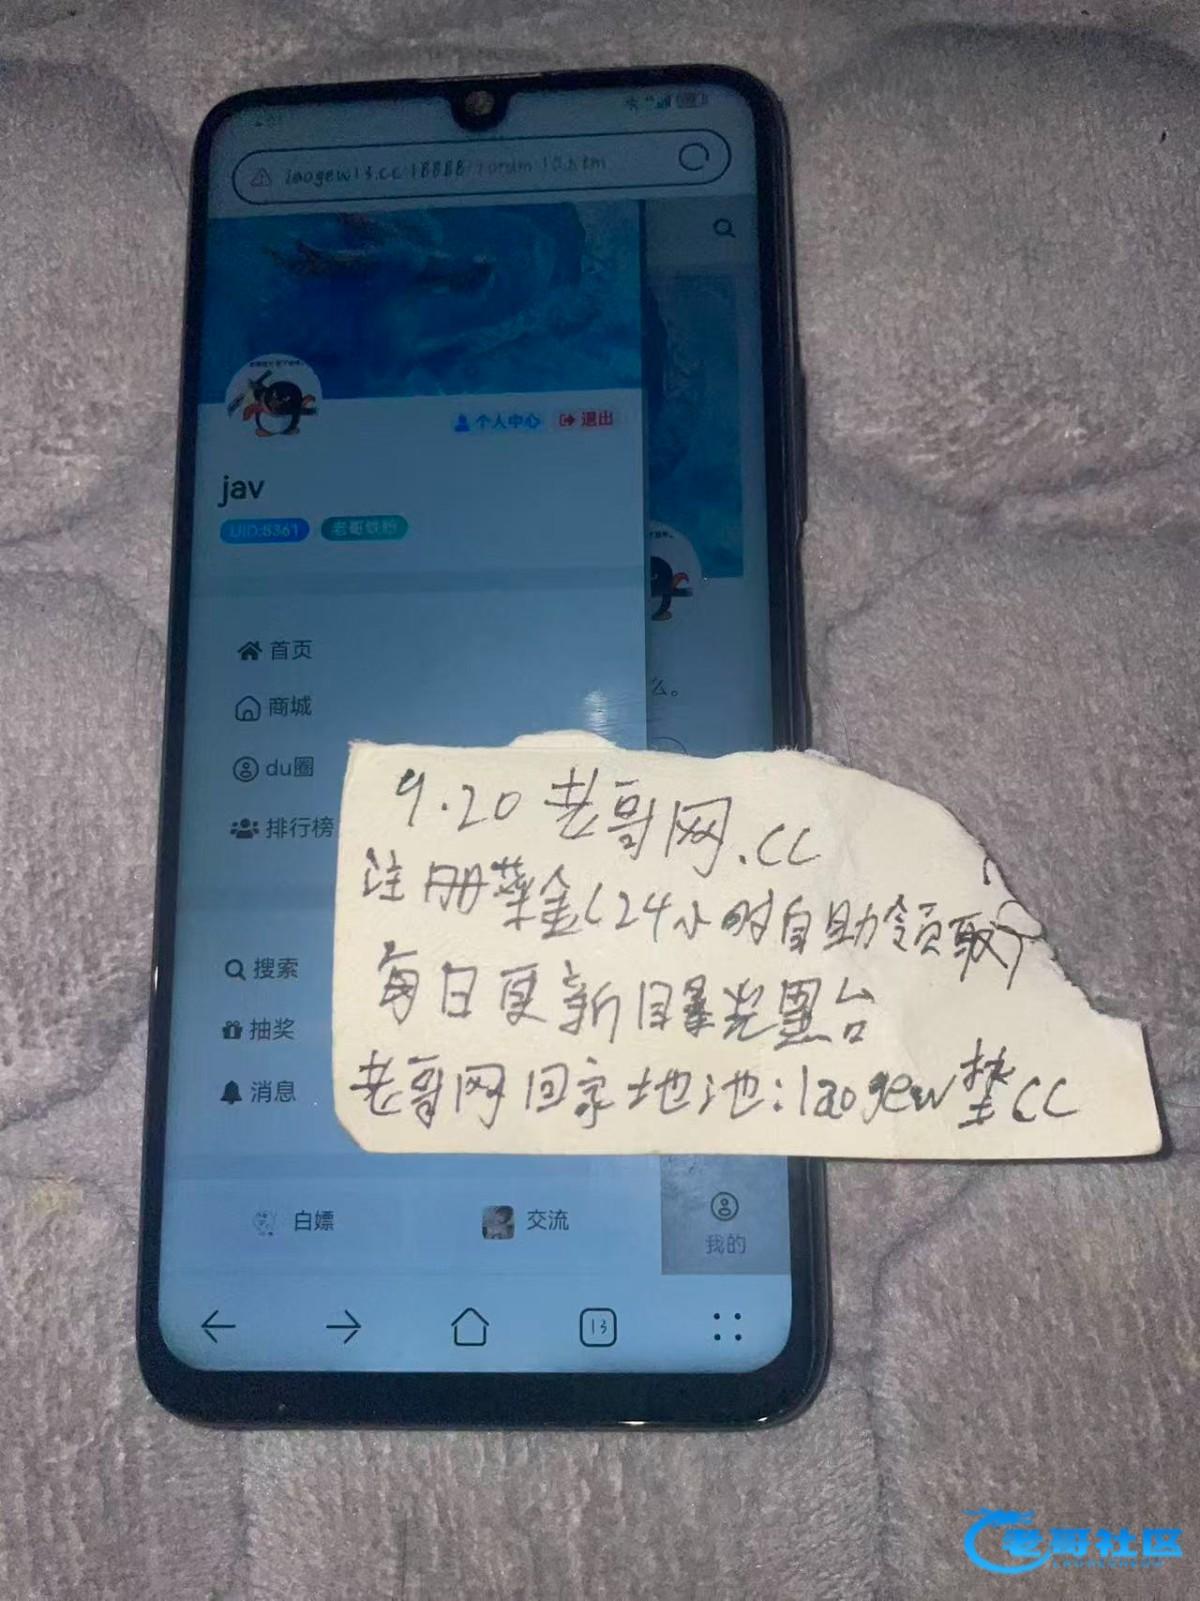 个人中心 退出
jav
UID:8361 老哥铁粉
首页
商城
du圈
么。
排行榜
搜索
抽奖
消息
白嫖 交流
我的
13
9.20 老哥网.cc
注册菜金(24小时自助领取)
每日更新曝光黑台
老哥网回家地池:laogew垫.cc
老哥社区